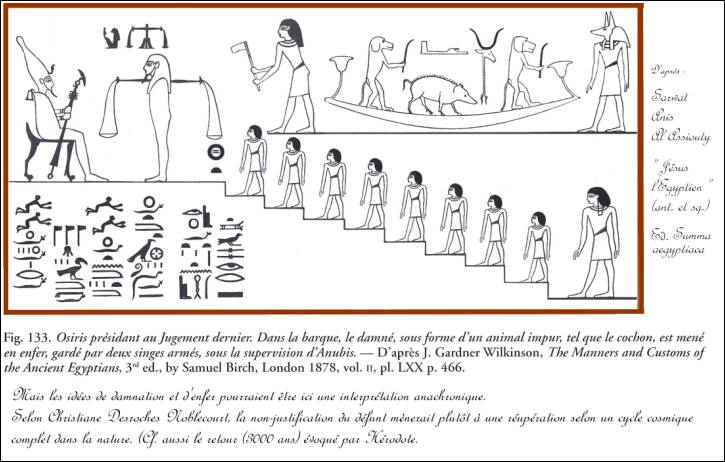 D'après :
Sarwat
Anis
Al Assiouty
" Jésus
l'Egyptien "
(ant. et sq.)
Ed. Summa
aegyptiaca
Fig. 133. Osiris présidant au Jugement dernier. Dans la barque, le damné, sous forme d'un animal impur, tel que le cochon, est mené
en enfer, gardé par deux singes armés, sous la supervision d'Anubis. — D'après J. Gardner Wilkinson, The Manners and Customs of
the Ancient Egyptians, 3rd ed., by Samuel Birch, London 1878, vol. II, pl. LXX p. 466.
Mais les idées de damnation et d'enfer pourraient être ici une interprétation anachronique.
Selon Christiane Desroches Noblecourt, la non-justification du défunt mènerait plutôt à une réupération selon un cycle cosmique
complet dans la nature. (Cf. aussi le retour (3000 ans) évoqué par Hérodote.